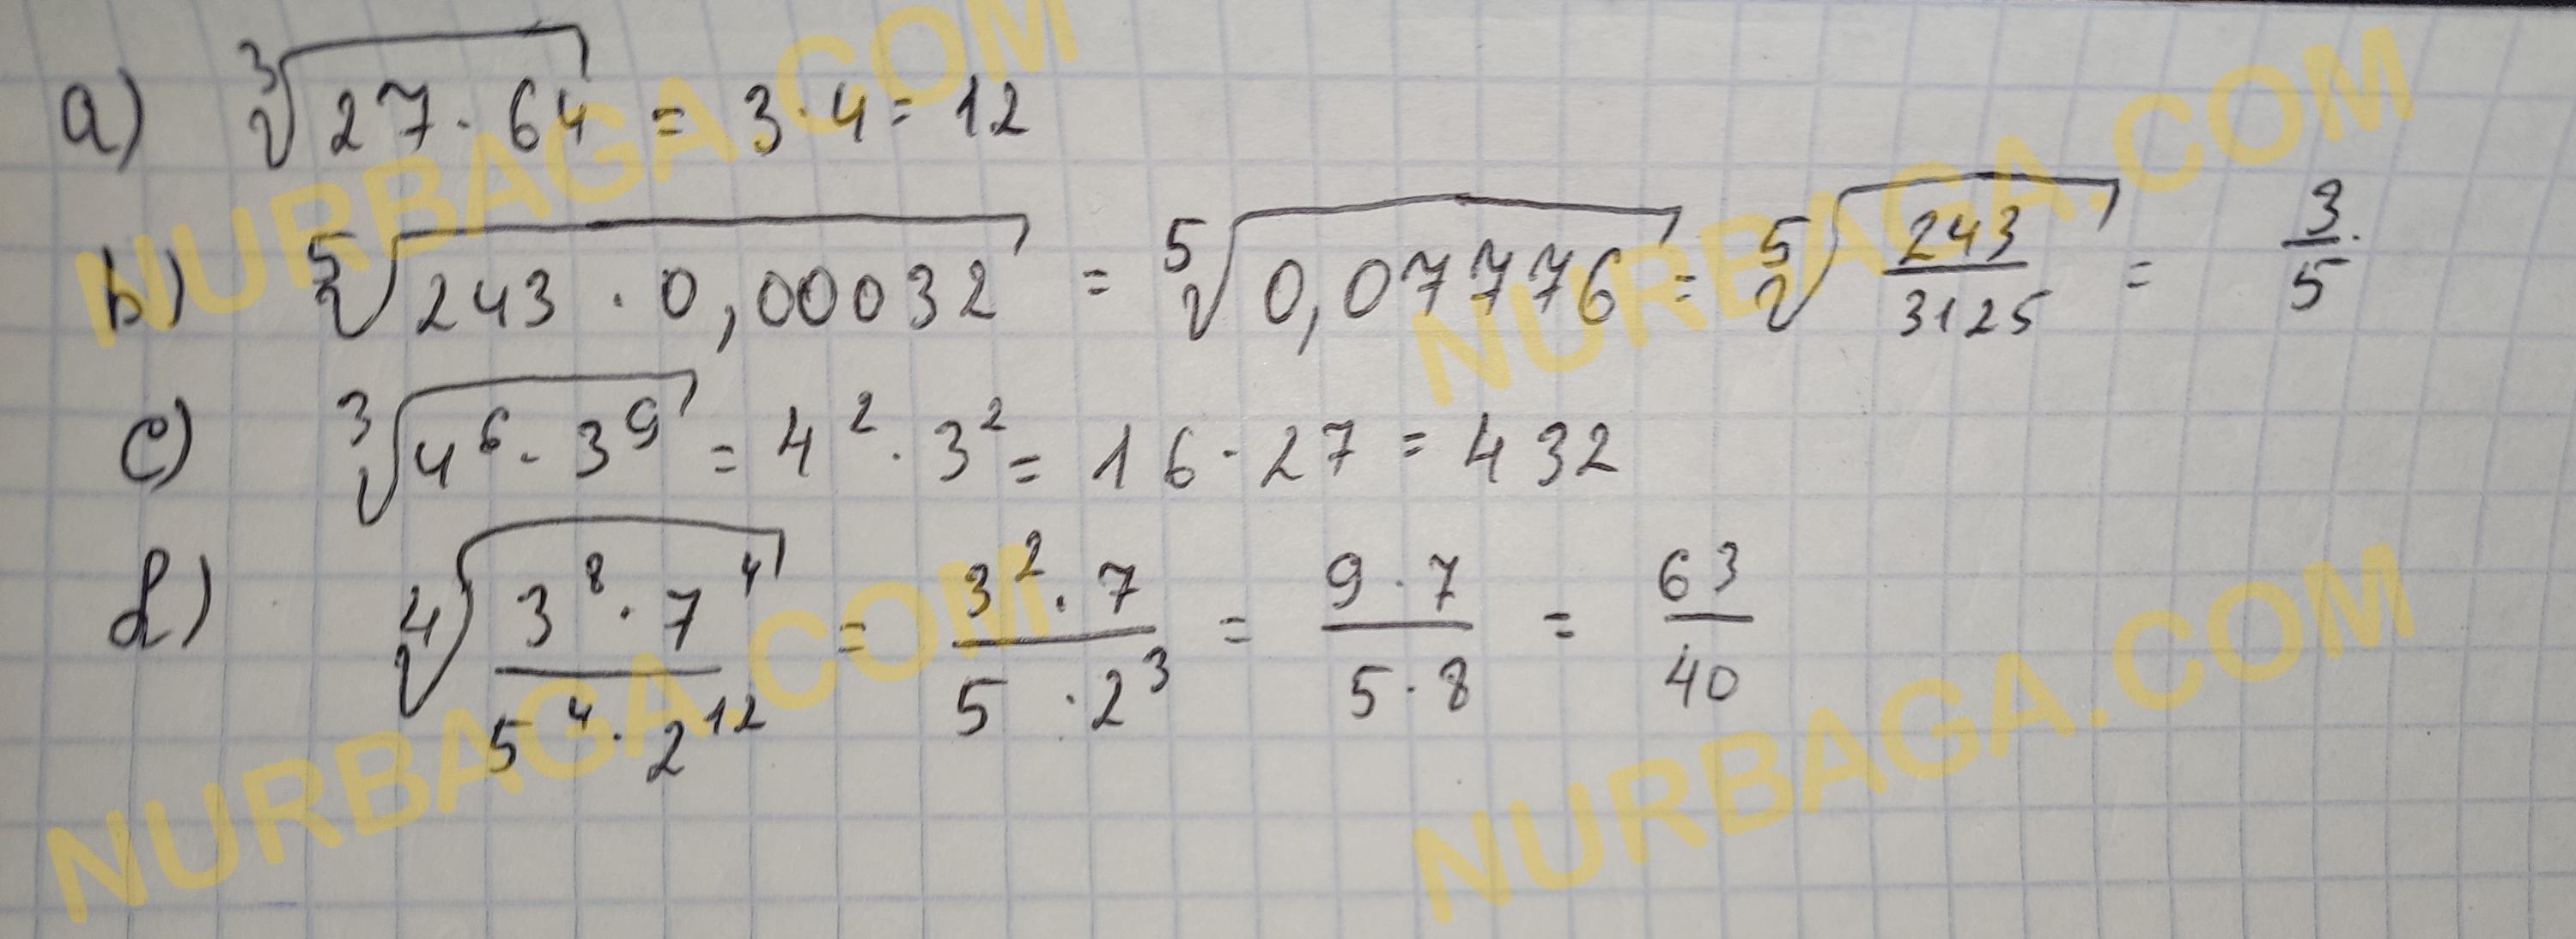 a) ∛(27·64) = 3·4 = 12
b) ⁵√(243 · 0,00032) = ⁵√(0,07776) = ⁵√(243/3125) = 3/5
c) ∛(4⁶ · 3⁹) = 4² · 3² = 16 · 27 = 432
d) ⁴√((3⁸ · 7⁴)/(5⁴ · 2¹²)) = (3² · 7)/(5 · 2³) = (9 · 7)/(5 · 8) = 63/40
NURBAGA.COM
NURBAGA.COM
NURBAGA.COM
NURBAGA.COM